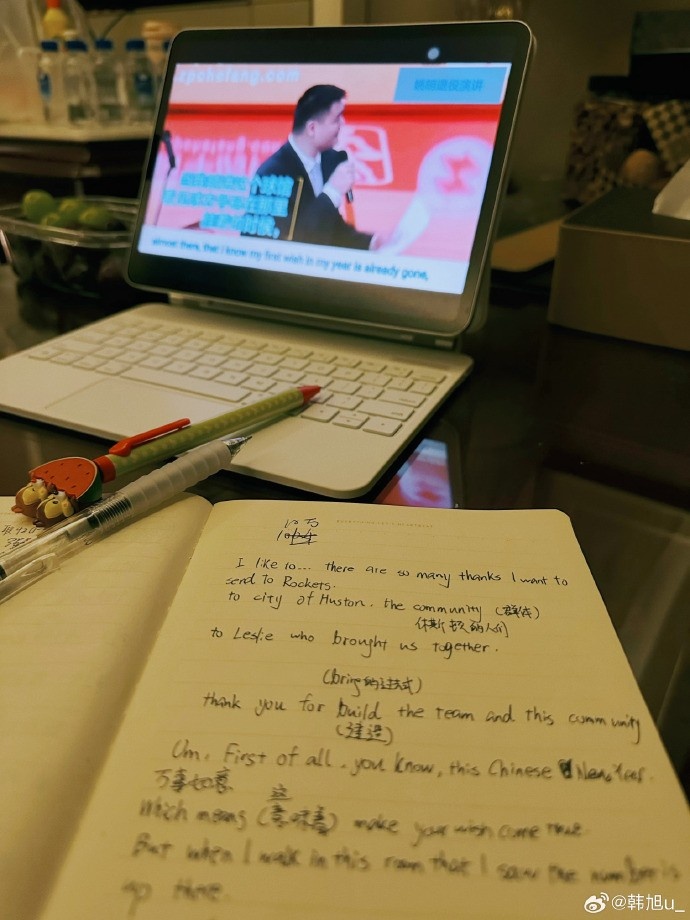 zpchefang.com
almost there, that I know my first wish in my year is already gone,
I like to... there are so many thanks I want to
send to Rockets.
to city of Huston. the community (群体)
休斯顿的人们
to Leslie who brought us together.
(bring的过去式)
thank you for build the team and this community
(建造)
Um, First of all, you know, this Chinese New Year.
万事如意 这
Which means (意味着) make you wish come true
But when I walk in this room that I saw the number is
up there.
@韩旭u_